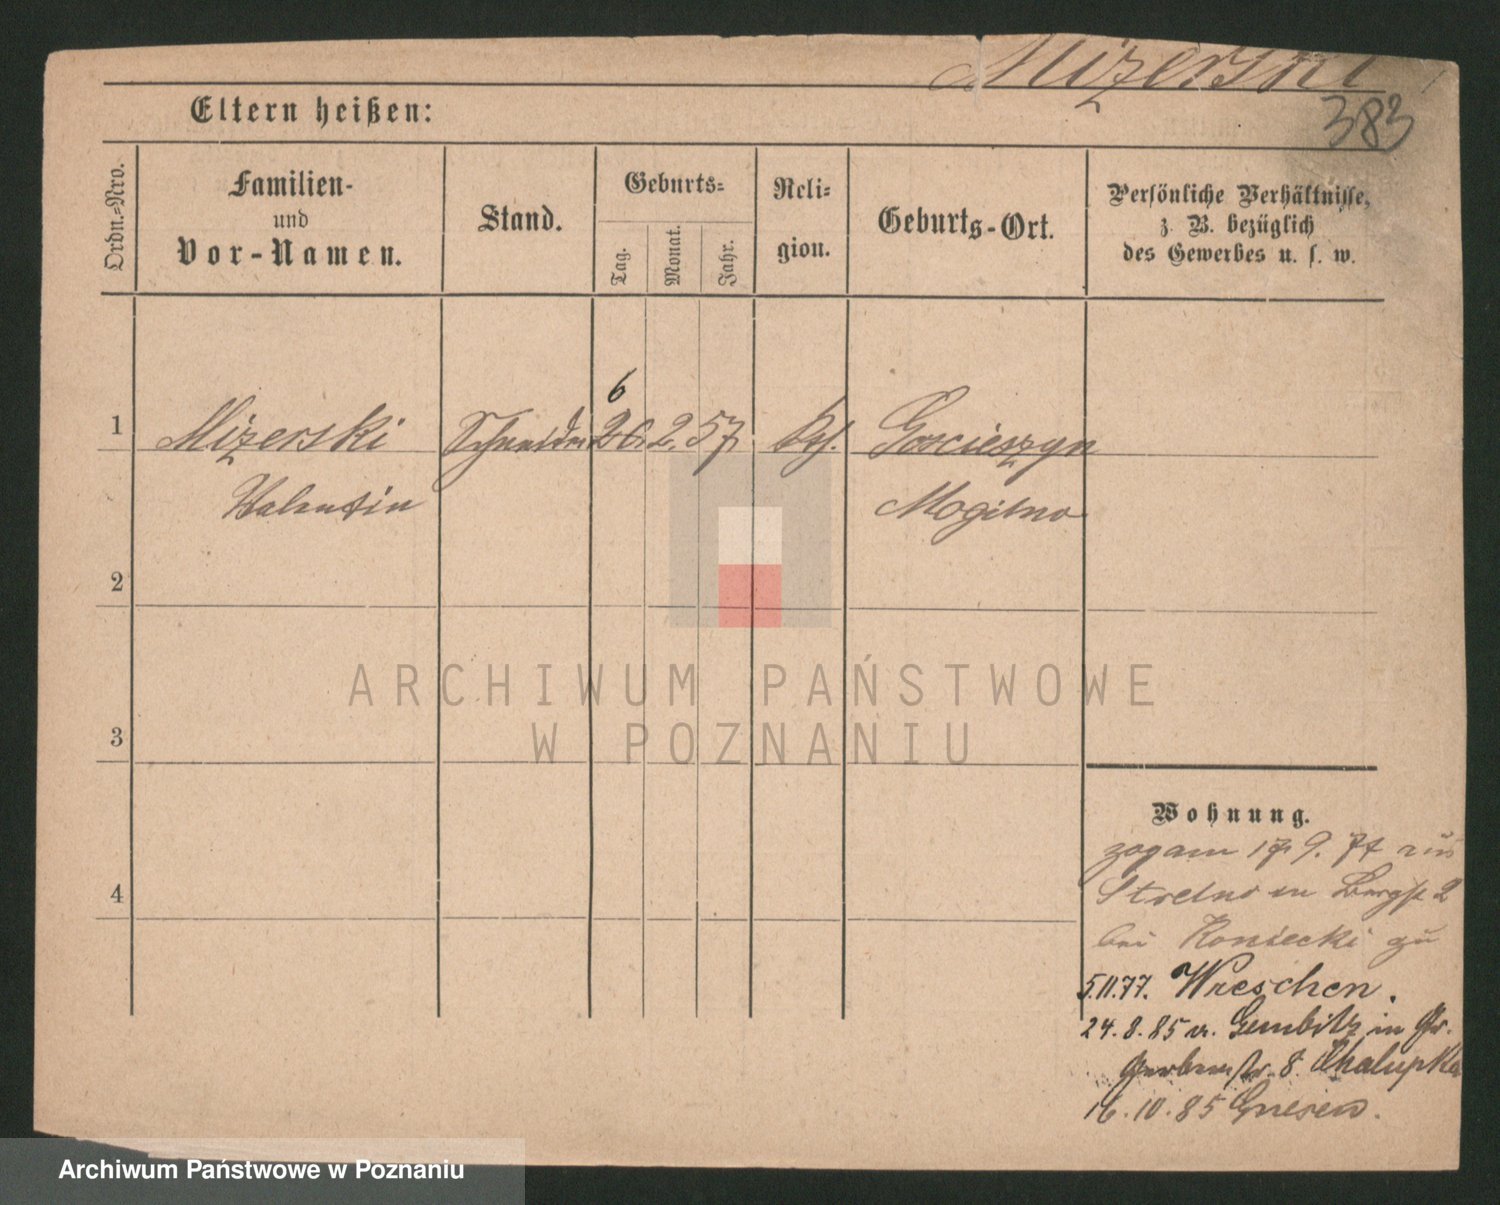 Mizerski
383
Eltern heißen:
Ordn.-Nro.
Familien-
und
Vor-Namen.
Stand.
Geburts-
Tag.
Monat.
Jahr.
Reli-
gion.
Geburts-Ort.
Persönliche Verhältnisse,
z. B. bezüglich
des Gewerbes u. s. w.
6
1 Mizerski Schneider 26. 2. 57 Kth. Goscieszyn
Valentin Mogilno
2
3
4
ARCHIWUM PAŃSTWOWE
W POZNANIU
Wohnung.
zog am 17 9. 77 aus
Strelno in Bergst 2
bei Koniecki zu
5.11.77. Wreschen.
24.8.85 v. Gembitz in Gr.
Gerberstr. 8. Chalupka
16.10.85 Gnesen.
Archiwum Państwowe w Poznaniu